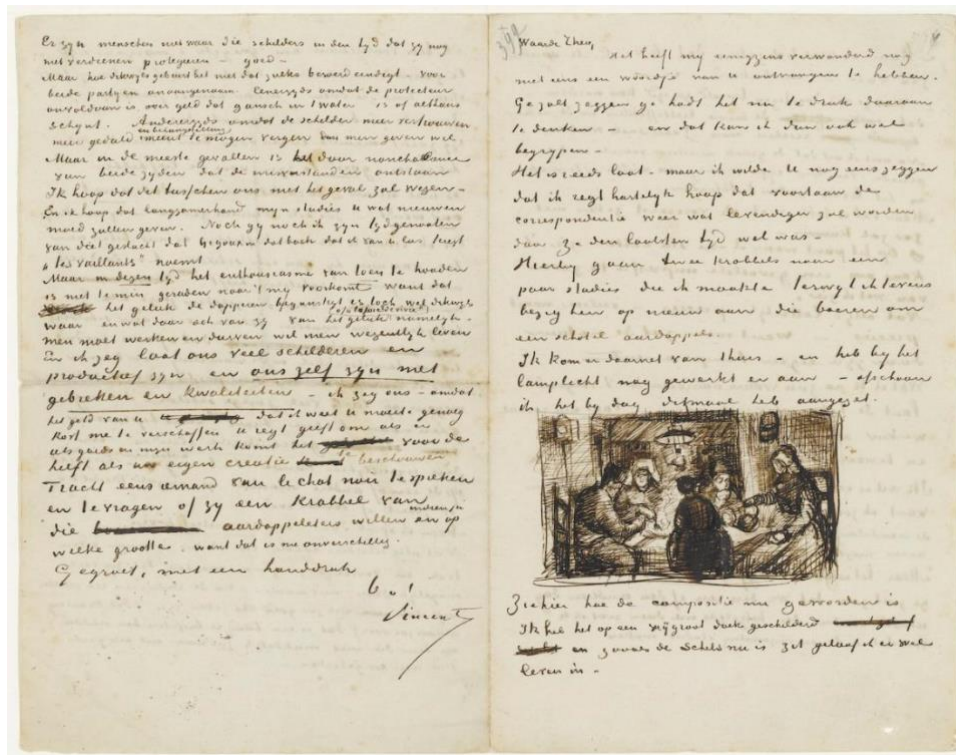 Er zyn menschen niet waar die schilders in den tyd dat zy nog
niet verdienen protegeeren – goed –
Maar hoe dikwyls gebeurt het niet dat zulks beroerd eindigt – voor
beide partyen onaangenaam. eenerzyds omdat de protecteur
onvoldaan is over geld dat gansch in t water is of althans
schynt. Anderzyds omdat de schilder meer vertrouwen
meer geduld en belangstelling meent te mogen vergen dan men geven wil.
Maar in de meeste gevallen is het door nonchalance
van beide zyden dat de misverstanden ontstaan
Ik hoop dat dit tusschen ons niet het geval zal wezen –
En ik hoop dat langzamerhand myn studies u wat nieuwen
moed zullen geven. Noch gy noch ik zyn tydgenooten
van dat geslacht dat Gigoux in dat boek dat ik van u las teregt
„les Vaillants” noemt
Maar in dezen tyd het enthousiasme van toen te houden
is niet te min geraden naar 't my voorkomt want dat
het geluk de dapperen begunstigt is toch wel dikwyls
waar en wat daar ook van zy van het geluk namelyk –
men moet werken en durven wil men wezentlyk leven
En ik zeg laat ons veel schilderen en
productief zyn en ons zelf zyn met
gebreken en kwaliteiten – ik zeg ons – omdat
het geld van u dat ik weet u moeite genoeg
kost me te verschaffen u regt geeft om als er
iets goeds in myn werk komt het voor de
helft als uw eigen creatie te beschouwen
Tracht eens iemand van le chat noir te spreken
en te vragen of zy een krabbel van
die aardappeleters willen en indien ja op
welke grootte. want dat is me onverschillig.
Gegroet, met een handdruk
t. à t.
Vincent
Waarde Theo,
Het heeft my eenigzins verwonderd nog
niet eens een woordje van u ontvangen te hebben.
Ge zult zeggen ge hadt het nu te druk daaraan
te denken – en dat kan ik dan ook wel
begrypen –
Het is reeds laat – maar ik wilde u nog eens zeggen
dat ik regt hartelyk hoop dat voortaan de
correspondentie weer wat levendiger zal worden
dan ze den laatsten tyd wel was –
Hierby gaan twee krabbels naar een
paar studies die ik maakte terwyl ik tevens
bezig ben op nieuw aan die boeren om
een schotel aardappels.
Ik kom er daarnet van thuis – en heb by het
lamplicht nog gewerkt er aan – ofschoon
ik het by dag ditmaal heb aangezet.
Ziehier hoe de compositie nu geworden is
Ik heb het op een vry groot doek geschilderd
en zooals de schets nu is zit geloof ik er wel
leven in –